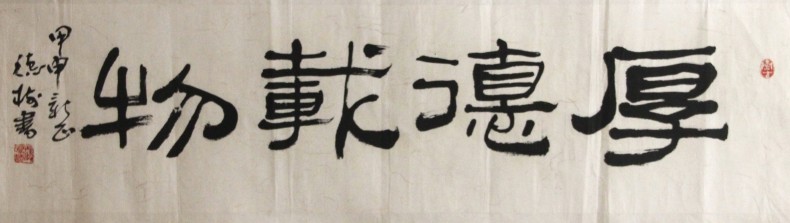 厚德載物
甲申新正
德樹書